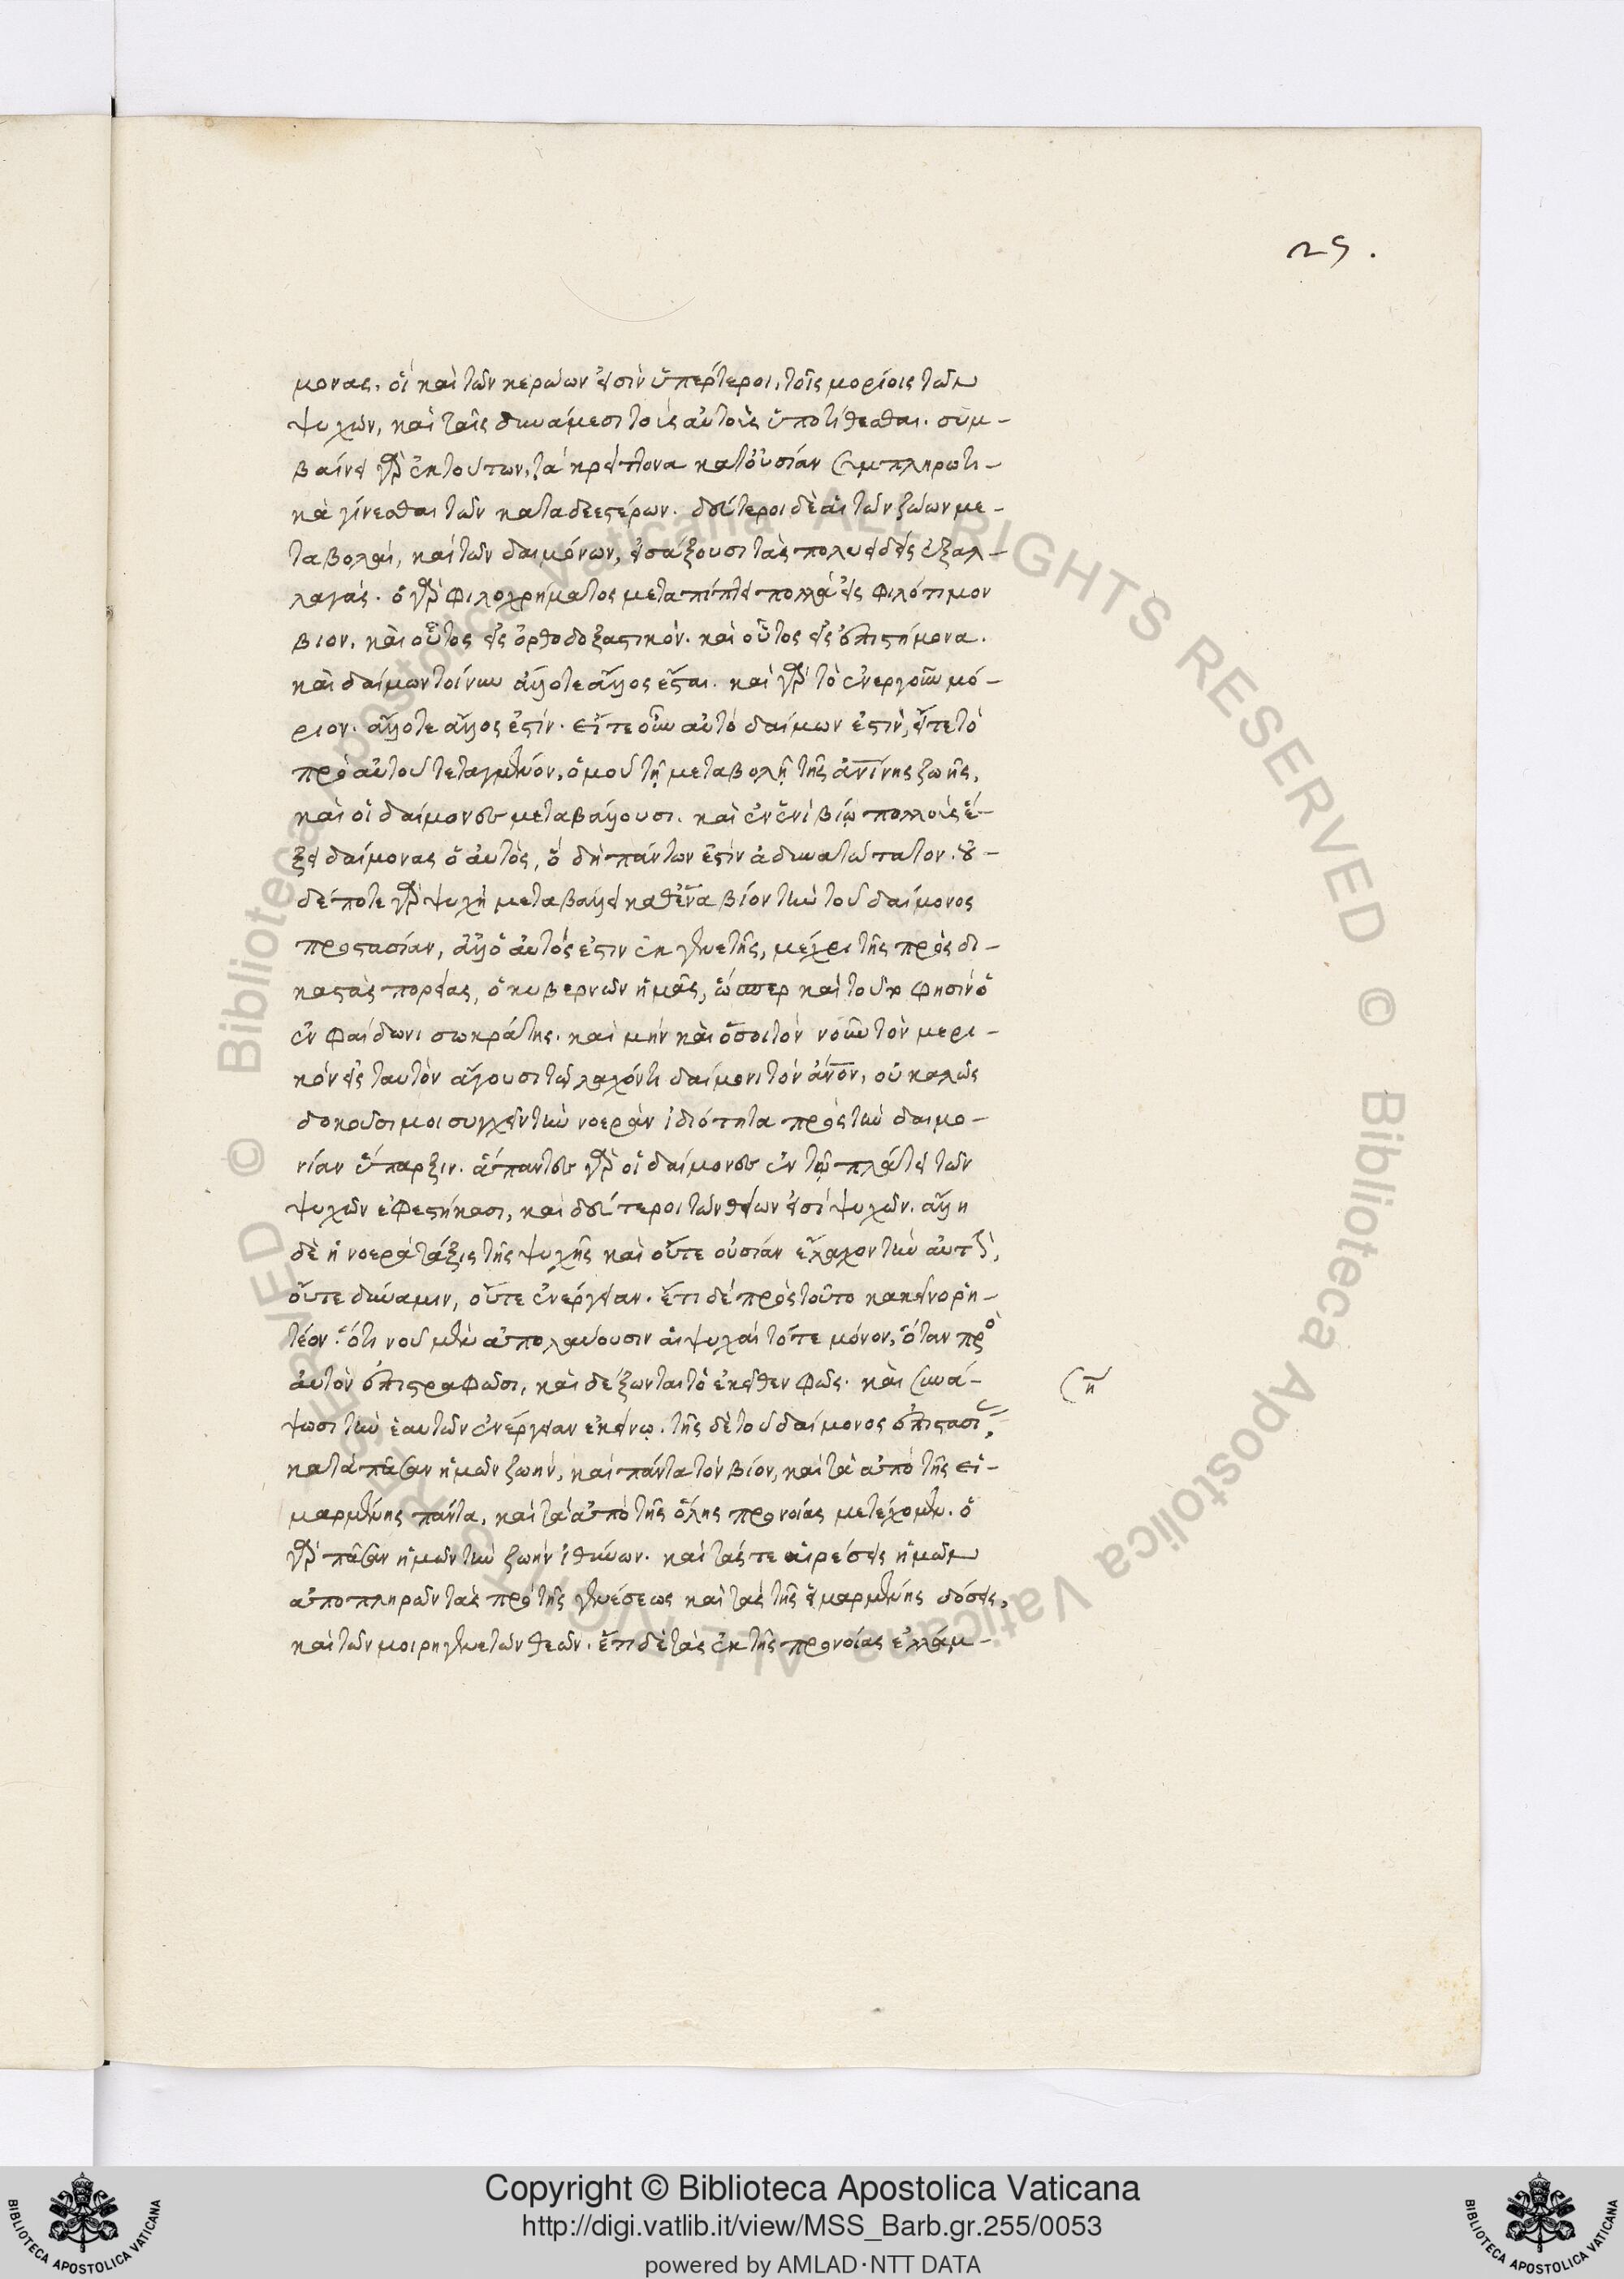 25.
μονας. οἱ καὶ τῶν κεράων εἰσὶν ὑπέρτεροι, τοῖς μορίοις τῶν
ψυχῶν, καὶ ταῖς δυνάμεσι τοὺς αὐτοὺς ὑποτίθεσθαι. συμ-
βαίνει γὰρ ἐκ τούτων, τὰ κρείττονα κατ' οὐσίαν συμπληρωτι-
κὰ γίνεσθαι τῶν καταδεεστέρων. δεύτεροι δὲ αἱ τῶν ζώων με-
ταβολαὶ, καὶ τῶν δαιμόνων, εἰσάξουσι τὰς πολυειδεῖς ἐξαλ-
λαγάς. ὁ γὰρ φιλοχρήματος μεταπίπτει πολλὰ εἰς φιλότιμον
βιον. καὶ οὗτος εἰς ὀρθοδοξαστικόν. καὶ οὗτος εἰς ἐπιστήμονα.
καὶ δαίμων τοίνυν ἄλλοτε ἄλλος ἔσται. καὶ γὰρ τὸ ἐνεργοῦν μό-
ριον. ἄλλοτε ἄλλος ἐστίν. εἴτε οὖν αὐτὸ δαίμων ἐστὶν, εἴτε τὸ
πρὸ αὐτοῦ τεταγμένον, ὁμοῦ τῇ μεταβολῇ τῆς ἀνίνης ζωῆς,
καὶ οἱ δαίμονες μεταβάλλουσι. καὶ ἐν ἑνὶ βίῳ πολλοὺς ἕ-
ξει δαίμονας ὁ αὐτὸς, ὃ δὴ πάντων ἐστὶν ἀδυνατώτατον. οὐ-
δέποτε γὰρ ψυχὴ μεταβάλλει καθ' ἕνα βίον τὴν τοῦ δαίμονος
προστασίαν, ἀλλ' ὁ αὐτός ἐστιν ἐκ γενετῆς, μέχρι τῆς πρὸς δι-
καστὰς πορείας, ὁ κυβερνῶν ἡμᾶς, ὥσπερ καὶ τοῦτο φησὶν ὁ
ἐν Φαίδωνι σωκράτης. καὶ μὴν καὶ ὅσοι τὸν νοῦν τὸν μερι-
κὸν εἰς ταυτὸν ἄγουσι τῷ λαχόντι δαίμονι τὸν ἄνον, οὐ καλῶς
δοκοῦσι μοι συγχεῖν τὴν νοερὰν ἰδιότητα πρὸς τὴν δαιμο-
νίαν ὕπαρξιν. ἅπαντες γὰρ οἱ δαίμονες ἐν τῷ πλάτει τῶν
ψυχῶν ἐφεστήκασι, καὶ δεύτεροι τῶν θείων εἰσὶ ψυχῶν. ἄλλη
δὲ ἡ νοερὰ τάξις τῆς ψυχῆς καὶ οὔτε οὐσίαν εἴλαχον τὴν αὐτὴν,
οὔτε δύναμιν, οὔτε ἐνέργειαν. ἔτι δὲ πρὸς τοῦτο κακεῖνο ῥη-
τέον. ὅτι νοῦ μὲν ἀπολαύουσιν αἱ ψυχαὶ τότε μόνον, ὅταν πρὸ
αὐτὸν ἐπιστραφῶσι, καὶ δέξωνται τὸ ἐκεῖθεν φῶς. καὶ συνά-
ψωσι τὴν ἑαυτῶν ἐνέργειαν ἐκείνῳ. τῆς δὲ τοῦ δαίμονος ἐπιστασίας,
κατὰ πᾶσαν ἡμῶν ζωὴν, καὶ πάντα τὸν βίον, καὶ τὰ ἀπὸ τῆς εἱ-
μαρμένης πάντα, καὶ τὰ ἀπὸ τῆς ὅλης προνοίας μετέχομεν. ὁ
γὰρ πᾶσαν ἡμῶν τὴν ζωὴν ἰθύνων. καὶ τάς τε αἱρέσεις ἡμῶν
ἀποπληρῶν τὰς πρὸ τῆς γενέσεως καὶ τὰς τῆς εἱμαρμένης δόσεις,
καὶ τῶν μοιρηγενετῶν θεῶν. ἔτι δὲ τὰς ἐκ τῆς προνοίας ἐλλάμ-
ση
Copyright © Biblioteca Apostolica Vaticana
http://digi.vatlib.it/view/MSS_Barb.gr.255/0053
powered by AMLAD·NTT DATA
BIBLIOTECA APOSTOLICA VATICANA
BIBLIOTECA APOSTOLICA VATICANA
© Biblioteca Apostolica Vaticana ALL RIGHTS RESERVED © Biblioteca Apostolica Vaticana ALL RIGHTS RESERVED